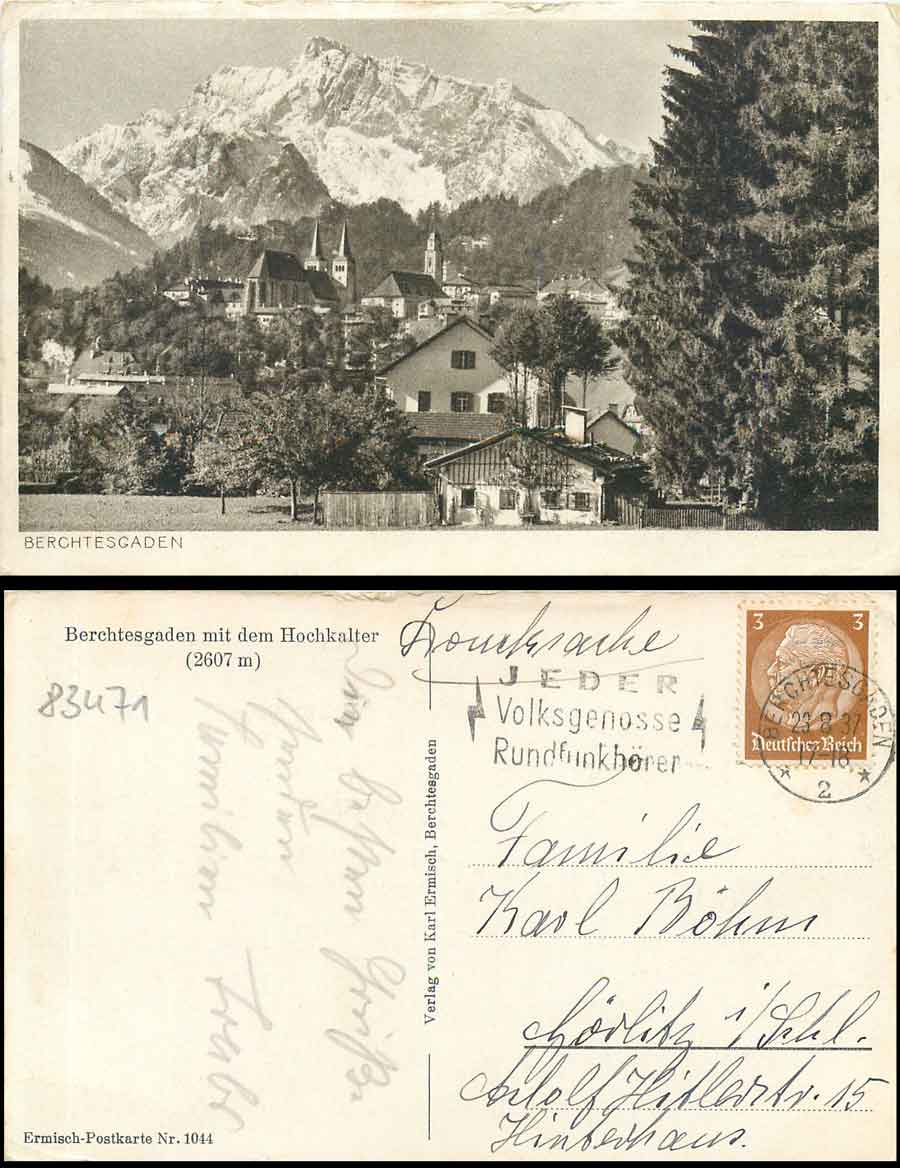 BERCHTESGADEN
Berchtesgaden mit dem Hochkalter
(2607 m)
83471
Drucksache
JEDER
Volksgenosse
Rundfunkhörer
3 3
Deutsches Reich
BERCHTESGADEN
23.8.37
17-18
2
Die besten Grüße
Familie
Karl Böhm
Görlitz i/Schl.
Adolf Hitlerstr. 15
Hinterhaus.
Verlag von Karl Ermisch, Berchtesgaden
Ermisch-Postkarte Nr. 1044